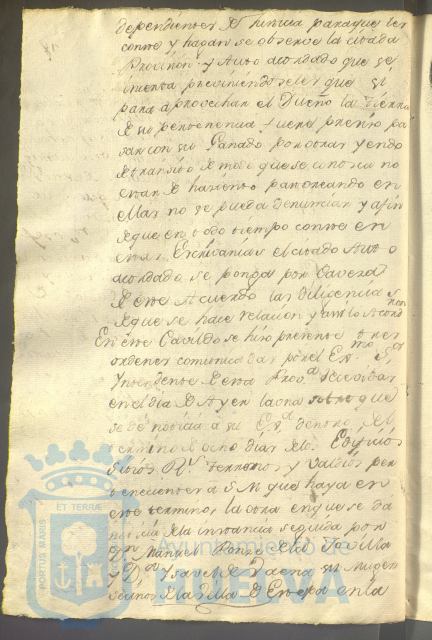 dependientes de Justicia para que les
conste y hagan se observe la citada
Provision y Auto acordado que se
inserta previniendoseles que si
para aprovechar el Dueño la tierra
de su pertenencia fuere preciso pa
sar con su Ganado por otras yendo
de transito de modo que se conozca no
estar de hasiento pastoreando en
ellas no se pueda denunciar y a fin
de que en todo tiempo conste en
estas Escrivanias el citado Auto
acordado se ponga por Cavesa
de este Acuerdo las diligencias
de que se hace relacion y
En este Cavildo se hizo presente
ordenes comunicadas por el Exmo. Sr.
Yntendente de esta Prova. recividas
en el dia de Ayer la una sobre que
se dé noticia a su Exa. dentro del
termino de ocho dias de los Edificios
Sitios Rs. terrenos y Valdios per
tenecientes a S.M. que haya en
este termino, la otra en que se da
noticia de la instancia seguida por
Dn. Manuel Ponze
y Da. Ysavel de su Muger
vecinos de la Villa de en la
PORTUS MARIS
ET TERRÆ
Ayuntamiento de
HUELVA